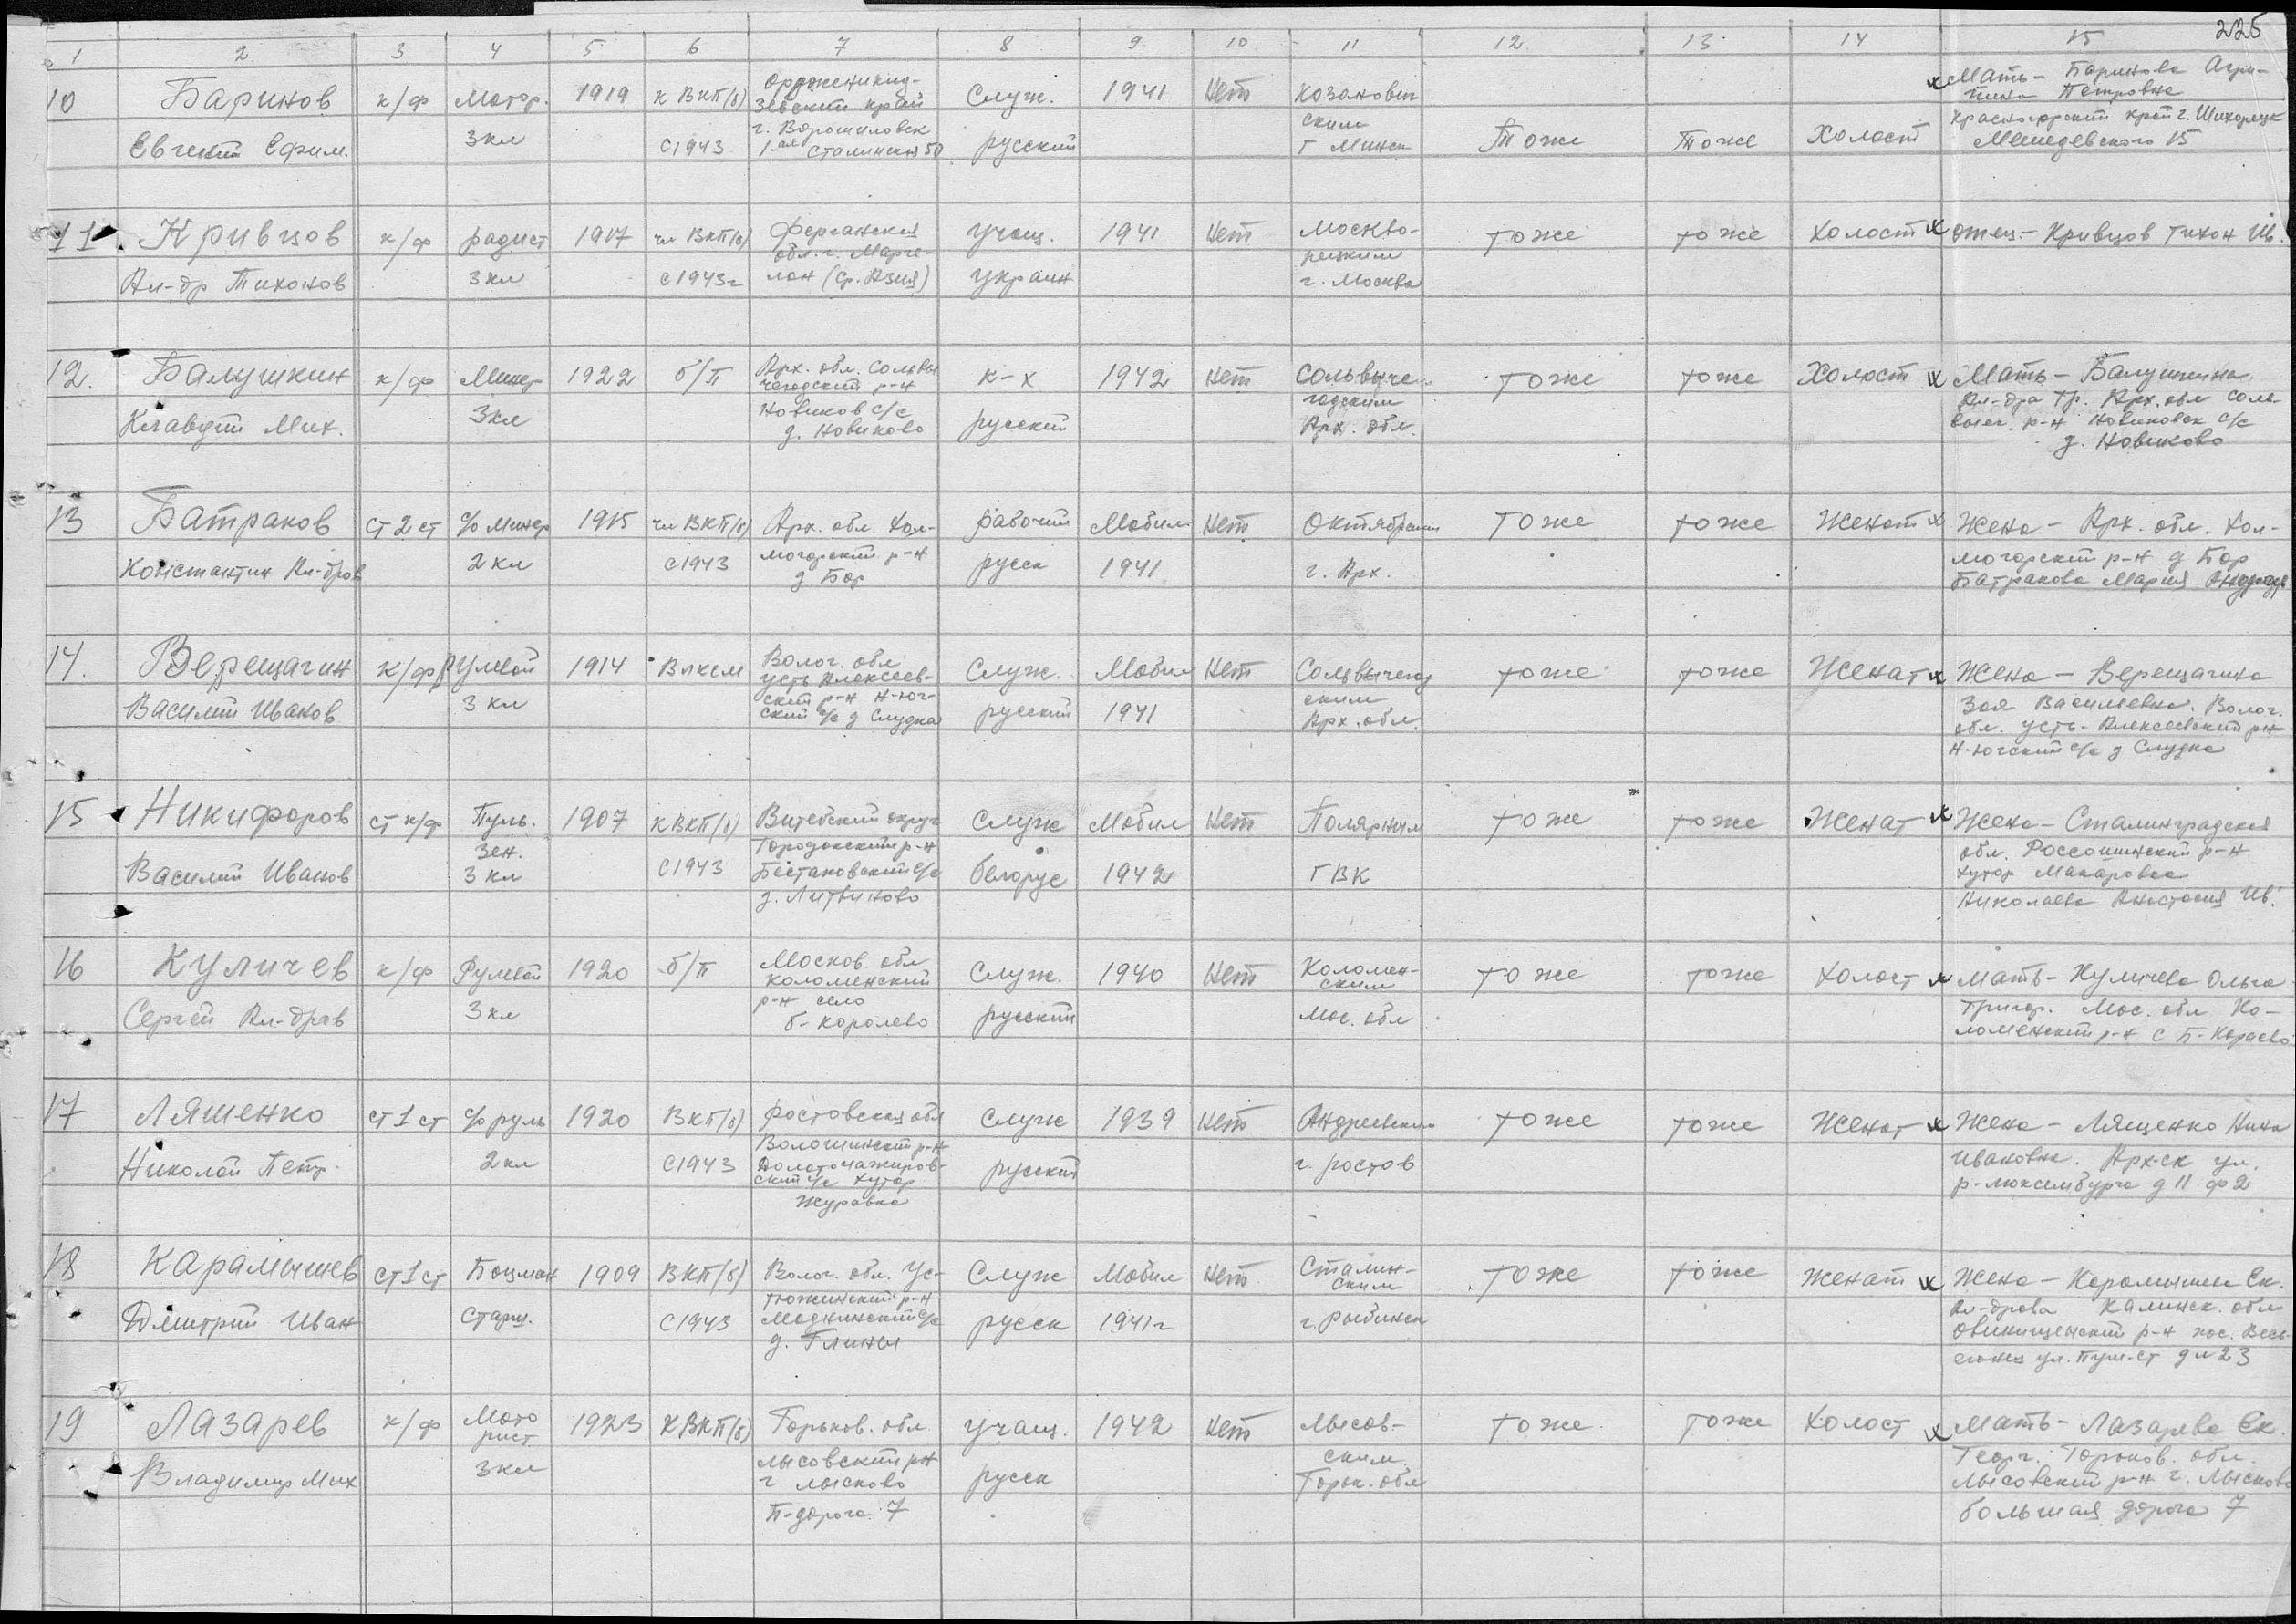 225
1 2 3 4 5 6 7 8 9 10 11 12 13 14 15
10 Баринов к/ф Мотор. 1919 к ВКП(б) Орджоникид- Служ. 1941 Нет Мать - Баринова Агри-
зевский край пина Петровна
Евгений Ефим. 3кл С1943 г. Ворошиловск русский ским Тоже Тоже Холост край г.
1-ая Сталинская 50 г Минск 15
11 Кривцов к/ф радист 1917 чл ВКП(б) Ферганская учащ. 1941 Нет Москво- тоже тоже холост отец - Кривцов Тихон Ив.
обл. г. Марге- рецким
Ал-др Тихонов 3кл С1943г лан (Ср. Азия) украин г. Москва
12. Балушкин к/ф Минер 1922 б/п Арх. обл. Сольвы к-х 1942 Нет Сольвыче- тоже тоже Холост Мать - Балушкина
чегодский р-н годским Ал-дра Гр. Арх. обл Соль-
Клавдий Мих. 3кл Новиков с/с русский Арх. обл. вычег. р-н Новиковск с/с
д. Новиково д. Новиково
13 Батраков ст 2 ст с/о Минер 1915 чл ВКП(б) Арх. обл. Хол- рабочий Мобил. Нет Октябрьским тоже тоже Женат Жена - Арх. обл. Хол-
Константин Ал-дров 2 кл С1943 могорский р-н русск 1941 г. Арх. могорский р-н д Бор
д Бор Батракова Мария
14. Верещагин к/ф Рулевой 1914 Влксм Волог. обл Служ. Мобил Нет Сольвычегод тоже тоже Женат Жена - Верещагина
усть Алексеев- ским Зоя Васильевна. Волог.
Василий Иванов 3 кл ский р-н Н-юг- русский 1941 Арх. обл. обл. усть-Алексеевский р-н
ский с/с д Слудка Н-югский с/с д Слудка
15 Никифоров ст к/ф Пуль. 1907 к ВКП(б) Витебский округ Служ Мобил Нет Полярным тоже тоже Женат Жена - Сталинградская
Зен. Городокский р-н обл. Россошинский р-н
Василий Иванов 3 кл С1943 с/с белорус 1942 ГВК хутор Макаровка
д. Литвиново Николаева Анастасия Ив.
16 Куличев к/ф Рулевой 1920 б/п Москов. обл Служ. 1940 Нет Коломен- тоже тоже холост Мать - Куличева Ольга
Коломенский ским
Сергей Ал-дров 3 кл р-н село русский Мос. обл Григор. Мос. обл Ко-
б-Королево ломенский р-н с
17 Ляшенко ст 1 ст с/о руль 1920 ВКП(б) Ростовская обл Служ 1939 Нет Андреевским тоже тоже Женат Жена - Лященко Нина
Волошинский р-н
Николай Петр. 2кл С1943 русский г. Ростов Ивановна. Арх-ск ул.
с/с хутор р-люксембурга д 11 ф 2
Журавка
18 Карамышев ст 1 ст Боцман 1909 ВКП(б) Волог. обл. Ус- Служ Мобил Нет Сталин- тоже тоже женат Жена - Карамышева Ек.
тюженский р-н ским Ал-дрова Калинск. обл
Дмитрий Иван Старш. С1943 с/с русск 1941г г. Рыбинск Овинищенский р-н пос. Весь-
д. Глины егонск ул. дм 23
19 Лазарев к/ф Мото 1923 К ВКП(б) Горьков. обл. учащ. 1942 Нет Лысов- тоже тоже холост Мать - Лазарева Ек.
рист
Владимир Мих 3кл лысовский р-н русск ским Георг. Горьков. обл.
г лысково Горьк. обл Лысовский р-н г. Лысково
Б-дорога 7 большая дорога 7